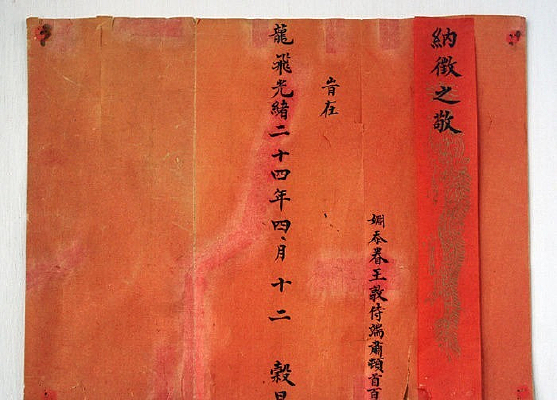 納徵之敬
姻忝眷王敦侍端肅頓首百
旹在
龍飛光緒二十四年四月十二 穀旦